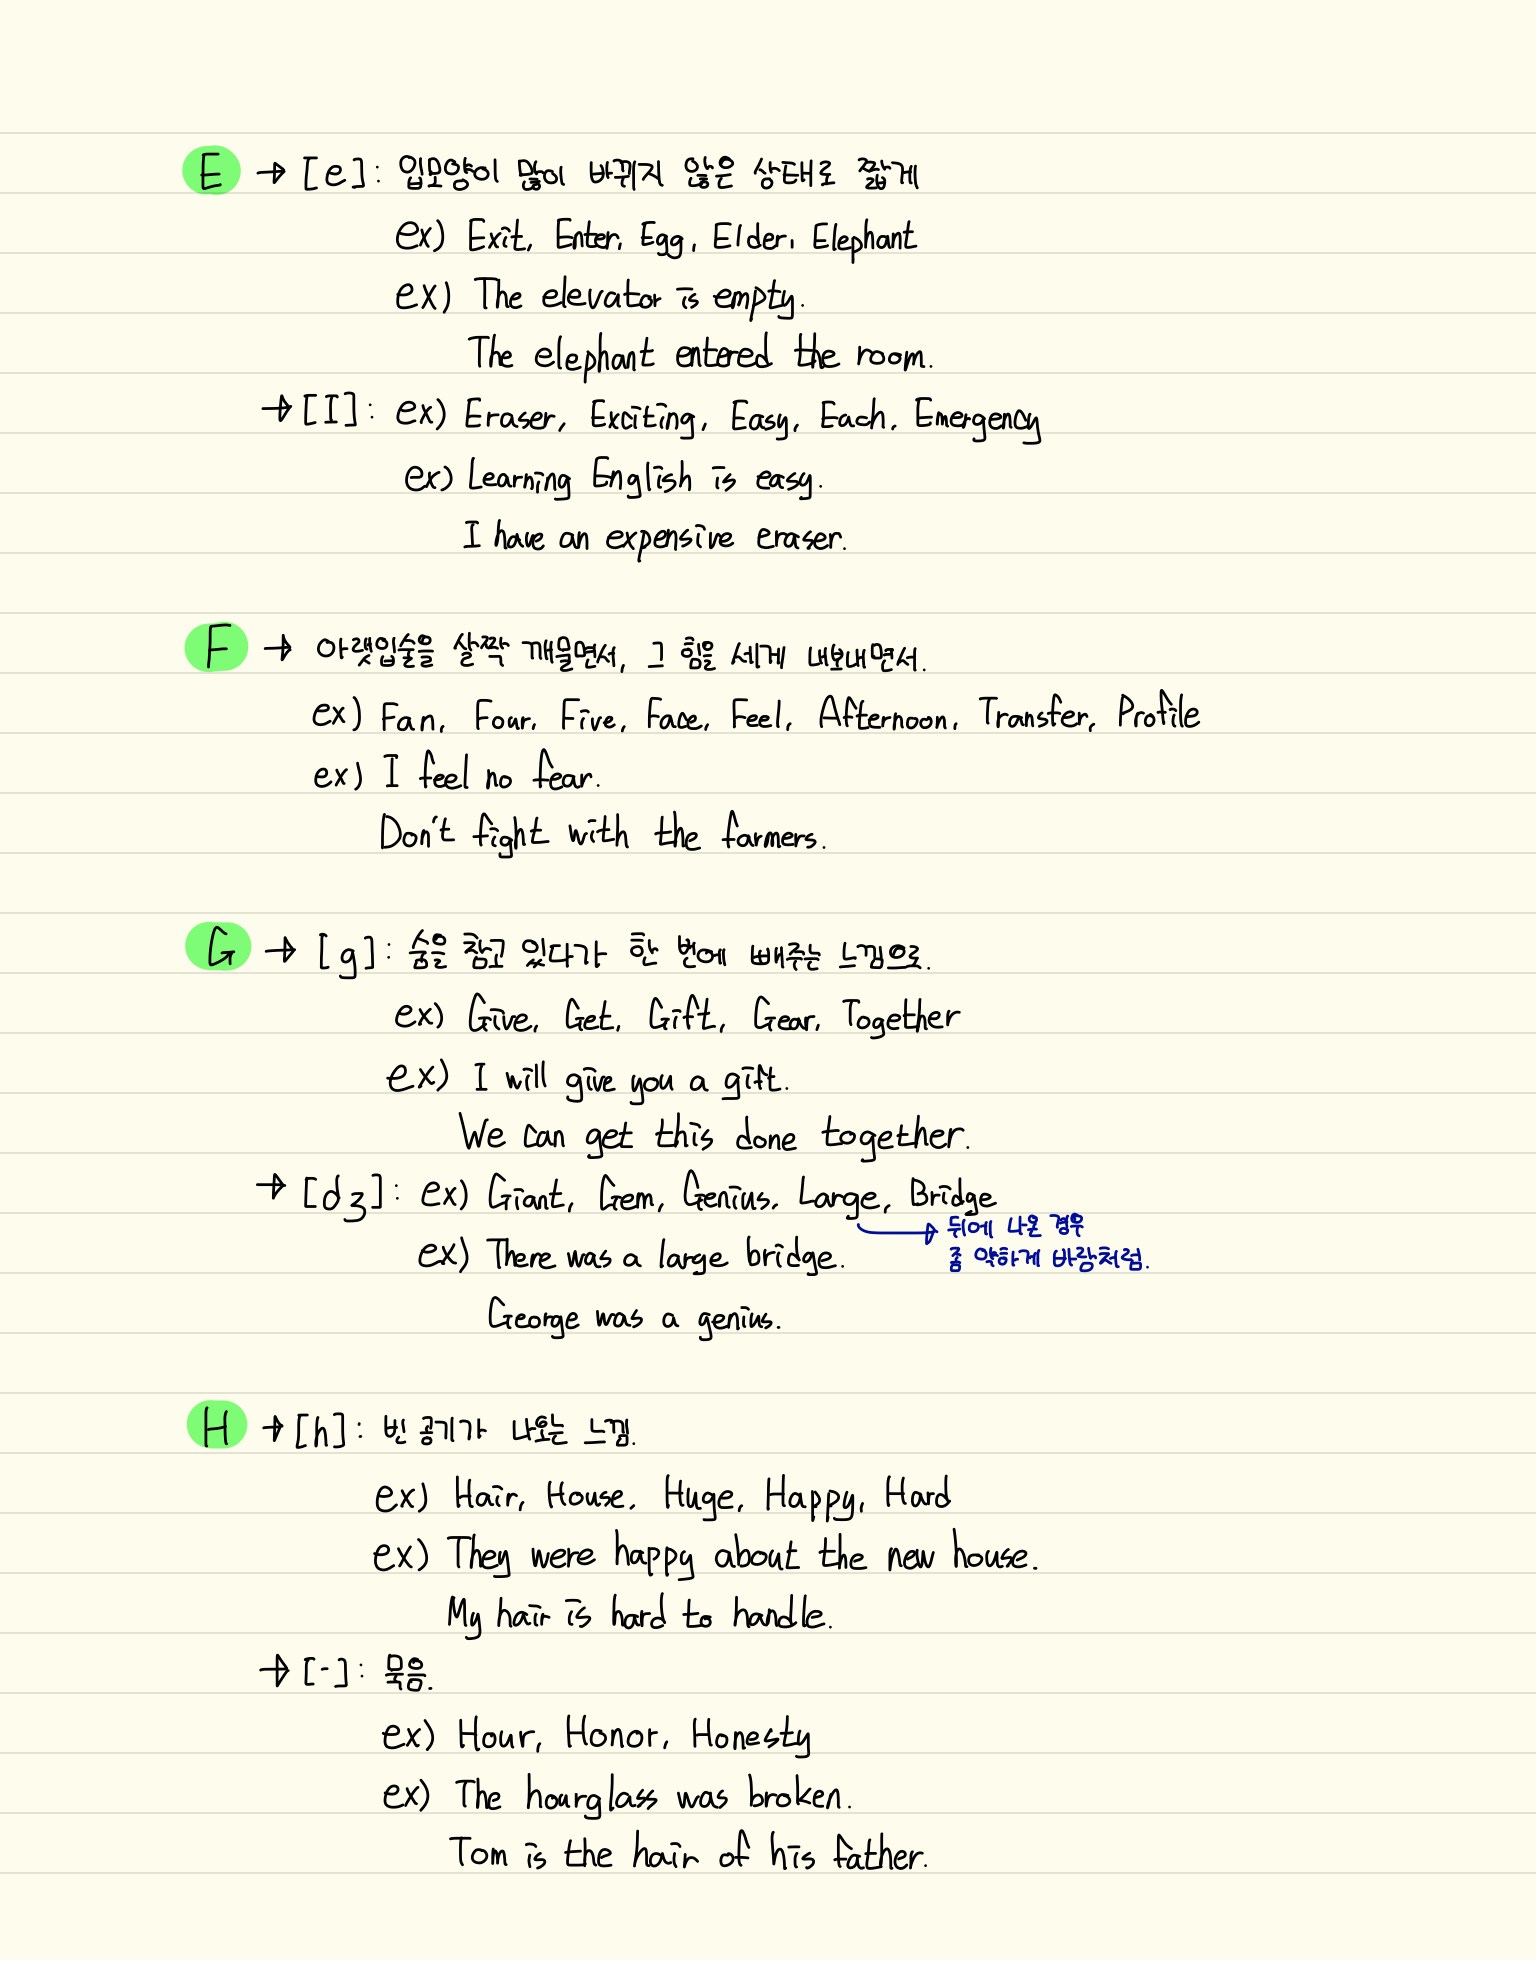 E → [e] : 입모양이 많이 바뀌지 않은 상태로 짧게
ex) Exit, Enter, Egg, Elder, Elephant
ex) The elevator is empty.
The elephant entered the room.
→ [I] : ex) Eraser, Exciting, Easy, Each, Emergency
ex) Learning English is easy.
I have an expensive eraser.
F → 아랫입술을 살짝 깨물면서, 그 힘을 세게 내보내면서.
ex) Fan, Four, Five, Face, Feel, Afternoon, Transfer, Profile
ex) I feel no fear.
Don't fight with the farmers.
G → [g] : 숨을 참고 있다가 한 번에 빼주는 느낌으로.
ex) Give, Get, Gift, Gear, Together
ex) I will give you a gift.
We can get this done together.
→ [dʒ] : ex) Giant, Gem, Genius, Large, Bridge
→ 뒤에 나온 경우
좀 약하게 바람처럼.
ex) There was a large bridge.
George was a genius.
H → [h] : 빈 공기가 나오는 느낌.
ex) Hair, House, Huge, Happy, Hard
ex) They were happy about the new house.
My hair is hard to handle.
→ [-] : 묵음.
ex) Hour, Honor, Honesty
ex) The hourglass was broken.
Tom is the hair of his father.